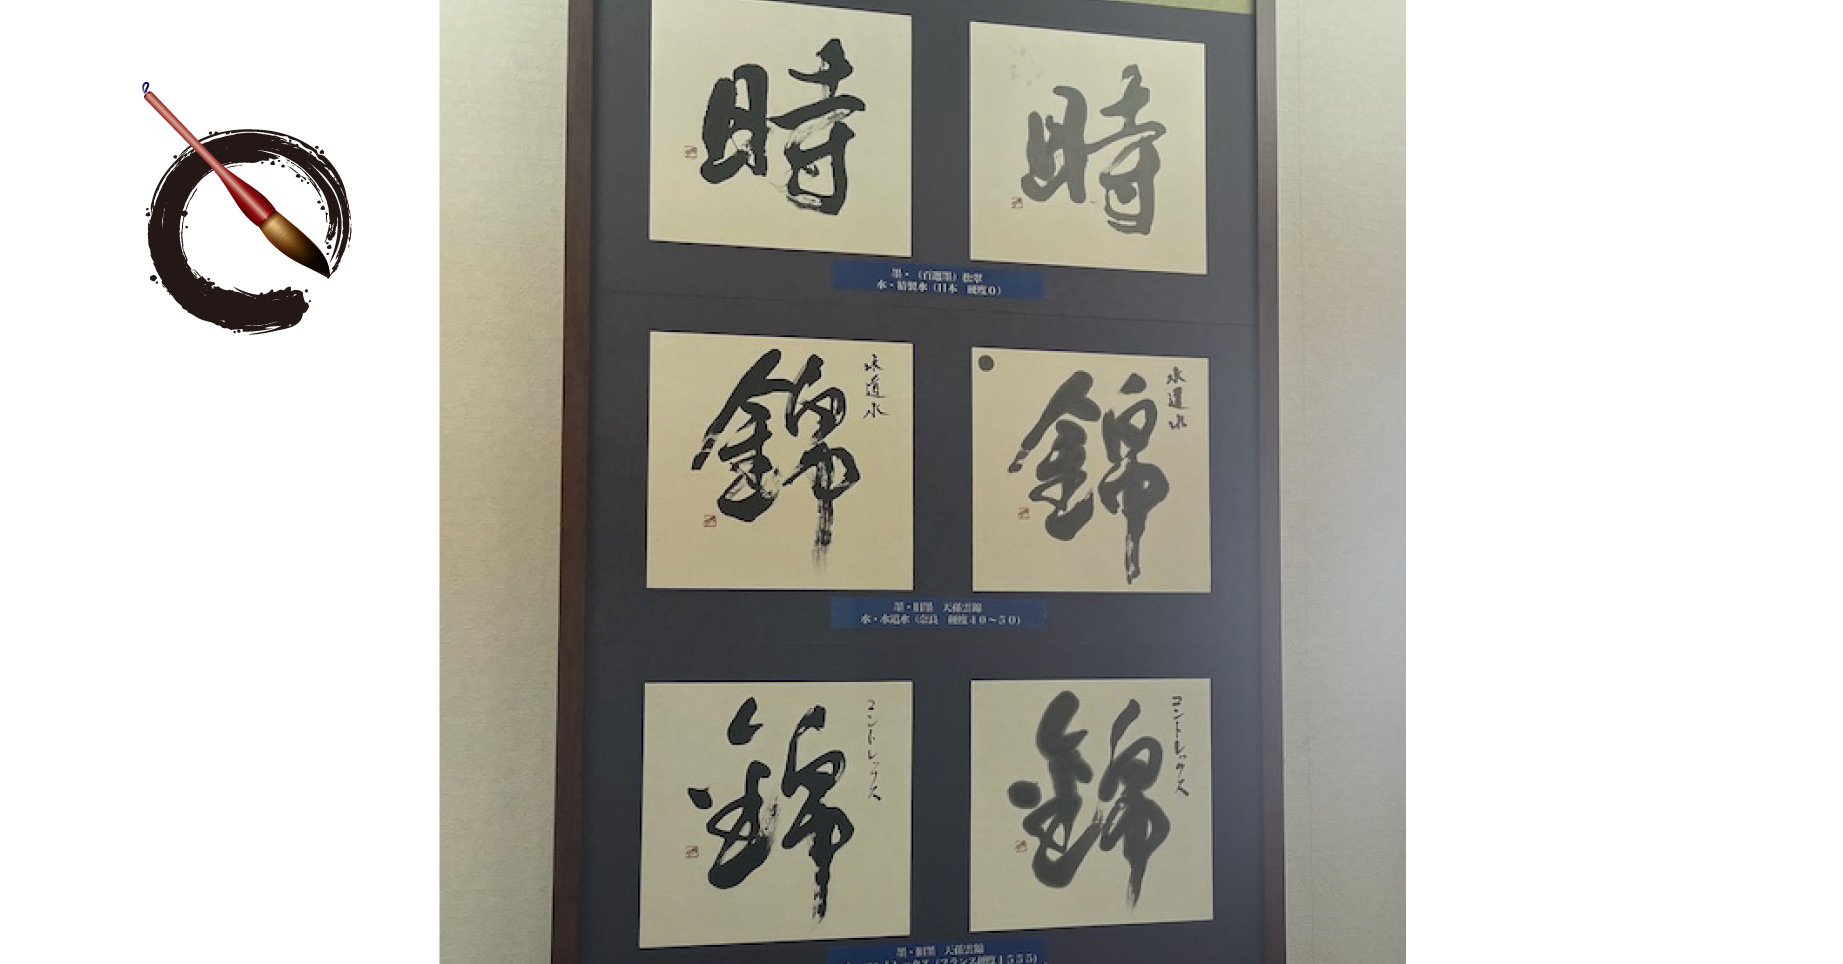 時
時
墨・（百選墨）松翠
水・精製水（日本　硬度０）
錦
水道水
錦
水道水
墨・旧墨　天孫雲錦
水・水道水（奈良　硬度４０～５０）
錦
コントレックス
錦
コントレックス
墨・旧墨　天孫雲錦
コントレックス（フランス硬度１５５５）